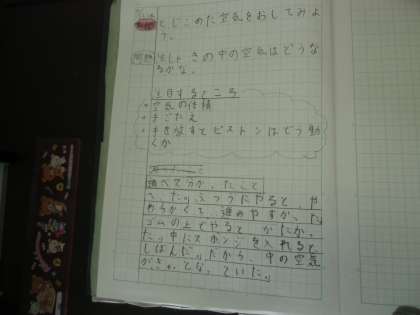 とじこめた空気をおしてみよ
う。
問題 注しゃきの中の空気はどうな
るかな。
注目するところ
・空気の体積
・手ごたえ
・手を放すとピストンはどう動
くか
調べて分かったこと
さいたい。ふつうにやると、や
わらかくて、進みやすかった。
ゴムの上でやると、かたかっ
た。中にスポンジを入れると、
しぼんだ。だから、中の空気
が
ていた。